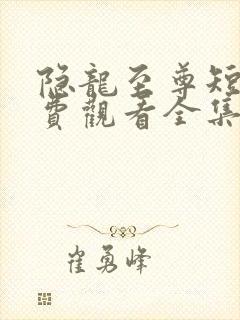 隐龍至尊短
費觀看全集
崔勇峰